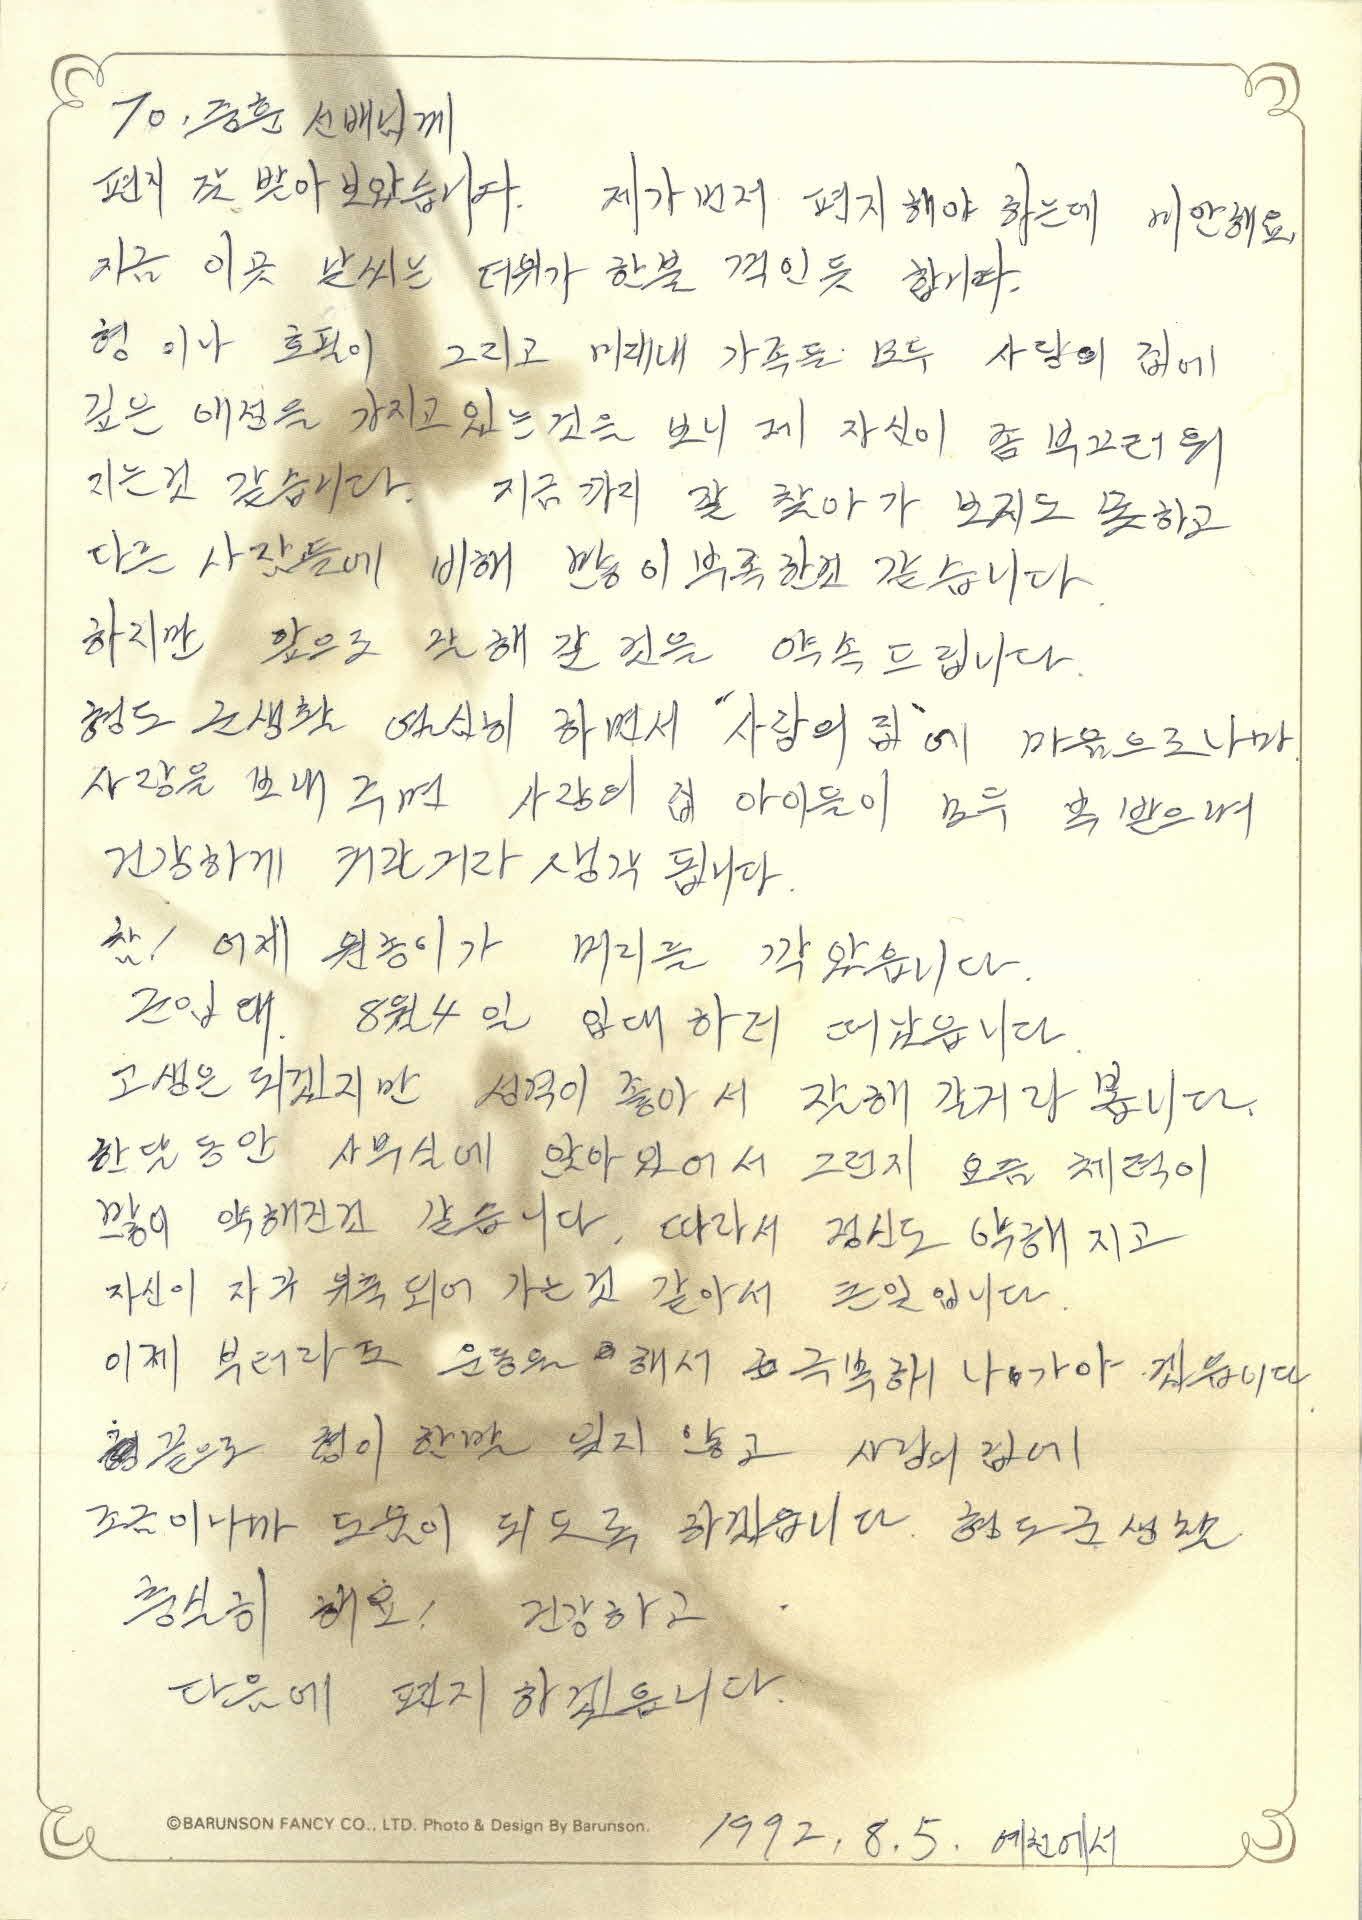 To. 중훈 선배님께
편지 잘 받아 보았습니다. 제가 먼저 편지해야 하는데 미안해요.
지금 이곳 날씨는 더위가 한불 꺽인듯 합니다.
형이나 호필이 그리고 미래내 가족들 모두 사랑의 집에
깊은 애정을 가지고 있는것을 보니 제 자신이 좀 부끄러워
지는것 같습니다. 지금까지 잘 찾아가 보지도 못하고
다른 사람들에 비해 많이 부족한것 같습니다.
하지만 앞으로 잘해 갈 것을 약속드립니다.
형도 군생활 열심히 하면서 "사랑의 집"에 마음으로나마
사랑을 보내주면 사랑의 집 아이들이 모두 복 받으며
건강하게 커갈거라 생각 됩니다.
참! 어제 원종이가 머리를 깍았읍니다.
군입대. 8월4일 입대하러 떠났읍니다.
고생은 되겠지만 성격이 좋아서 잘해 갈거라 봅니다.
한달동안 사무실에 앉아 있어서 그런지 요즘 체력이
많이 약해진것 같습니다. 따라서 정신도 약해지고
자신이 자꾸 위축되어 가는것 같아서 큰일입니다.
이제부터라도 운동을 해서 극복해 나가야 겠읍니다
끝으로 형이 한말 잊지 않고 사랑의 집에
조금이나마 도움이 되도록 하겠읍니다. 형도 군생활
충실히 해요! 건강하고
다음에 편지하겠읍니다.
©BARUNSON FANCY CO., LTD. Photo & Design By Barunson.
1992. 8. 5. 예천에서